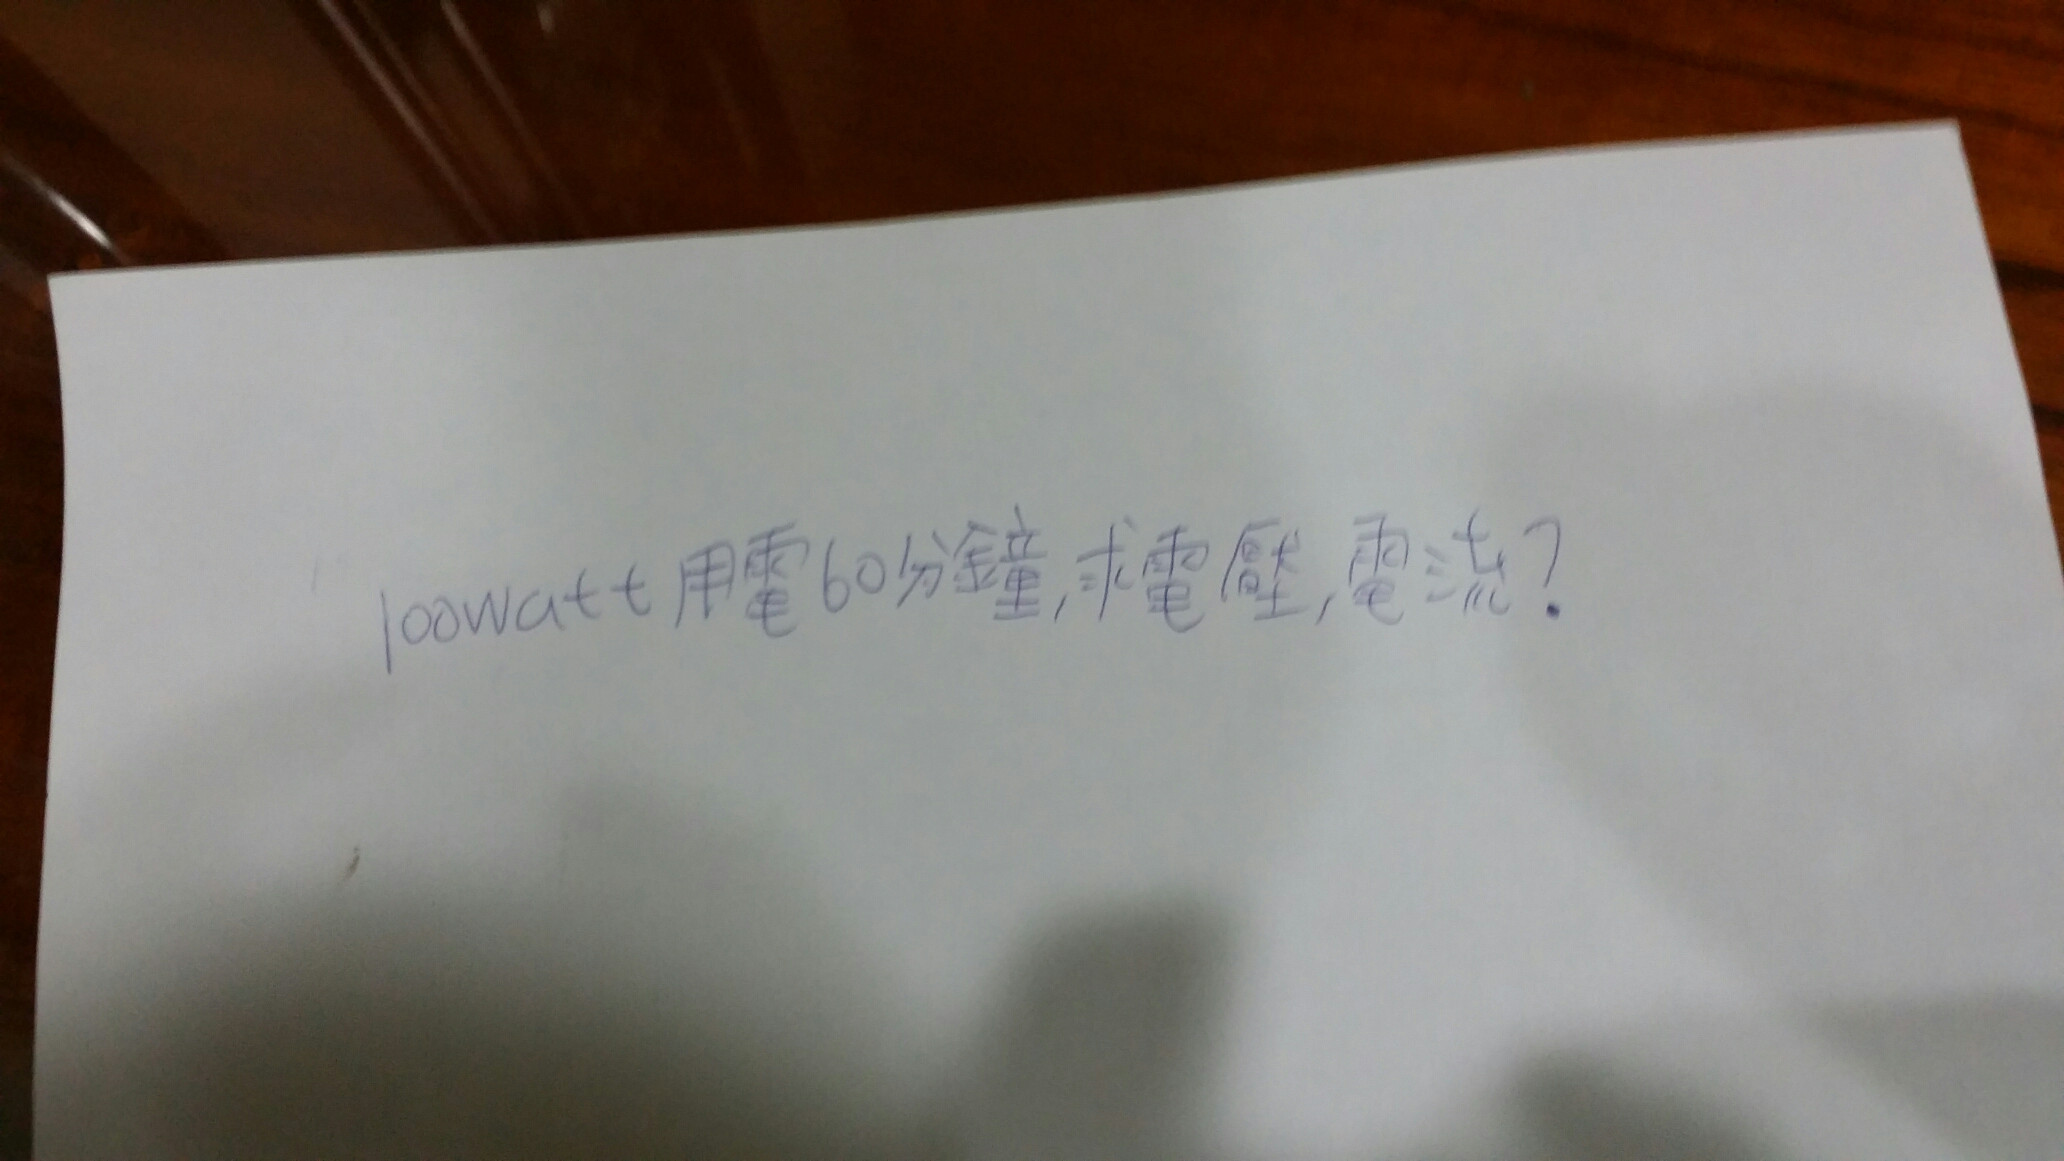 100watt用電60分鐘,求電壓,電流?